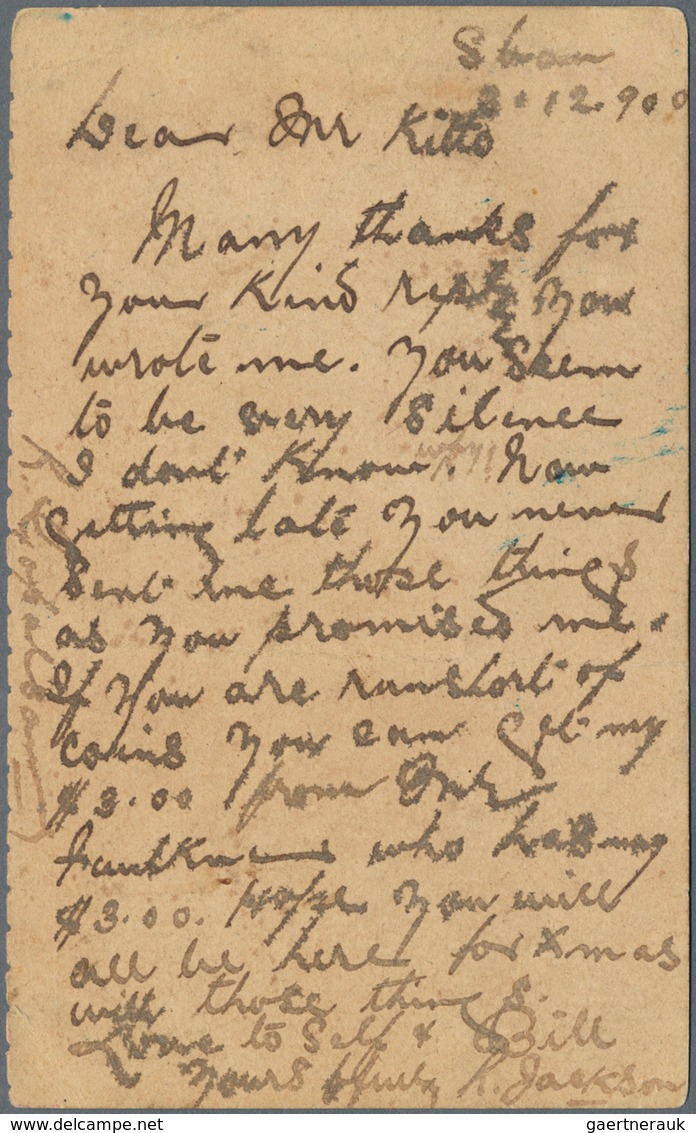 2.12.900
Dear Mr Kitto
Many thanks for
your kind reply you
wrote me. You seem
to be very silence
I dont know. why!! Now
getting late you never
sent me those things
as you promised me.
If you are runshort of
coins you can get my
$3.00 from Mr
Faulkner who has my
$3.00. Hope you will
all be here for Xmas
with those things.
Love to self & Bill
Yours K. Jackson
gaertnerauk / delcampe.net